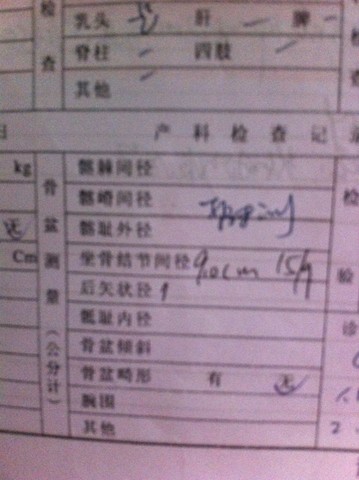 检 乳头 肝 脾
查 脊柱 四肢
其他
产科检查记
kg 骨 髂棘间径
髂嵴间径 检
无 盆 骶耻外径
Cm 测 坐骨结节间径 9.0cm 15/9 验
量 后矢状径
骶耻内径 诊
(公分计) 骨盆倾斜
骨盆畸形 有 无
腕围
其他 2